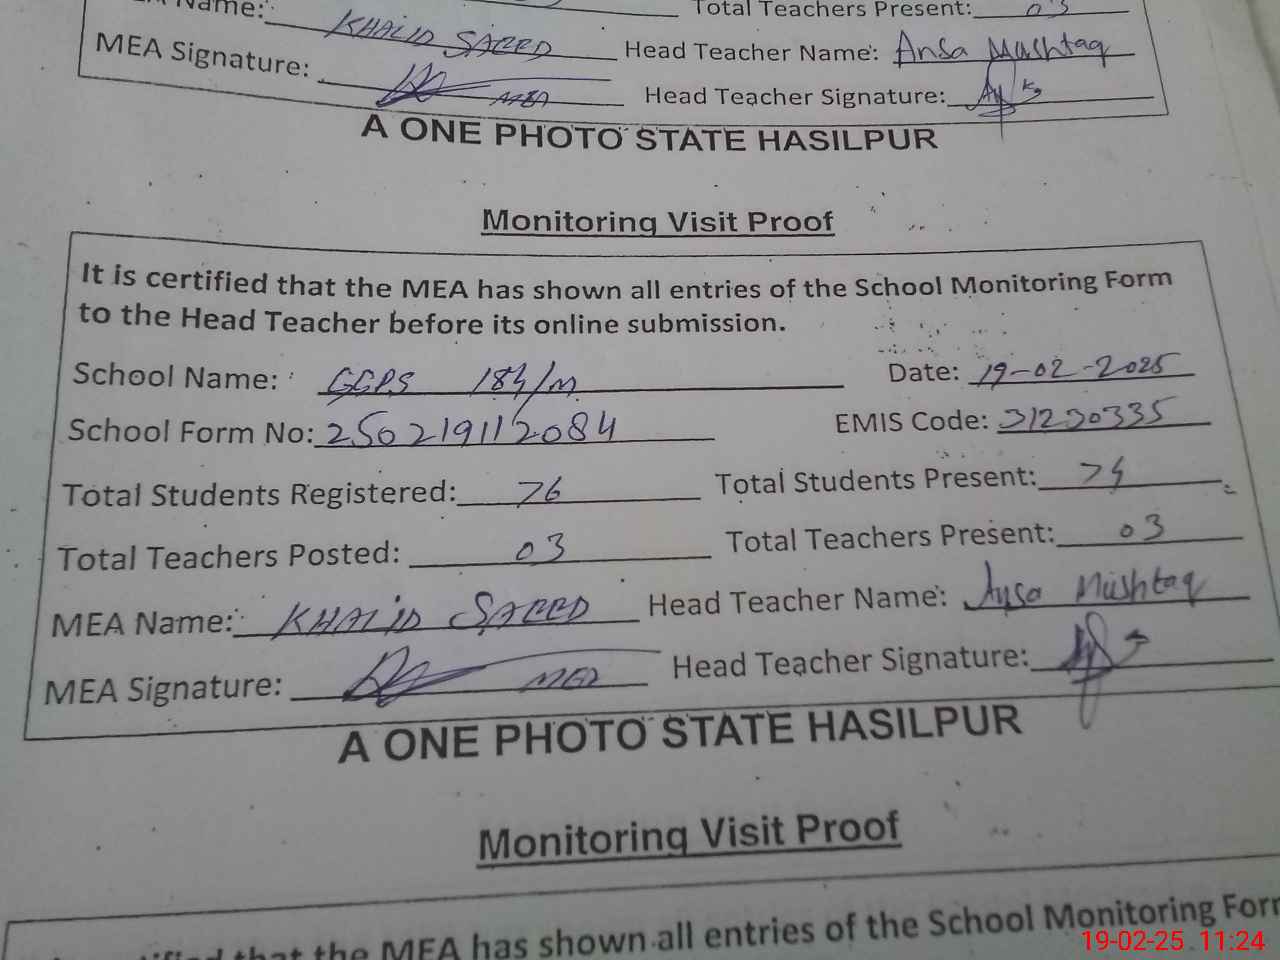 Name: KHALID SAEED
Total Teachers Present: 03
MEA Signature: MEA
Head Teacher Name: Ansa Mushtaq
Head Teacher Signature:
A ONE PHOTO STATE HASILPUR
Monitoring Visit Proof
It is certified that the MEA has shown all entries of the School Monitoring Form
to the Head Teacher before its online submission.
School Name: GGPS 184/M Date: 19-02-2025
School Form No: 250219112084 EMIS Code: 31230335
Total Students Registered: 76 Total Students Present: 74
Total Teachers Posted: 03 Total Teachers Present: 03
MEA Name: KHALID SAEED Head Teacher Name: Ansa Mushtaq
MEA Signature: MEA Head Teacher Signature:
A ONE PHOTO STATE HASILPUR
Monitoring Visit Proof
that the MEA has shown all entries of the School Monitoring Form
19-02-25 11:24